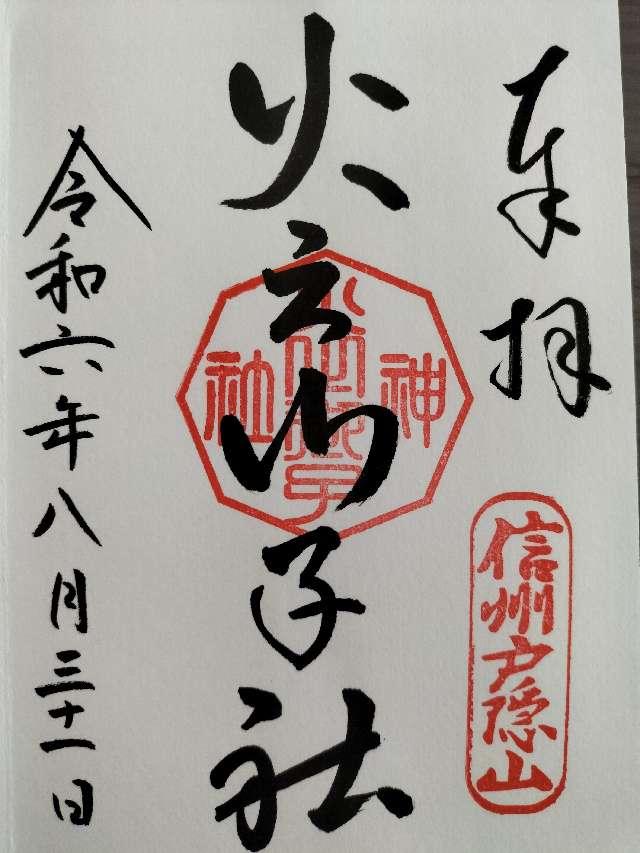 奉拝
信州戸隠山
火之御子社
神社
令和六年八月三十一日